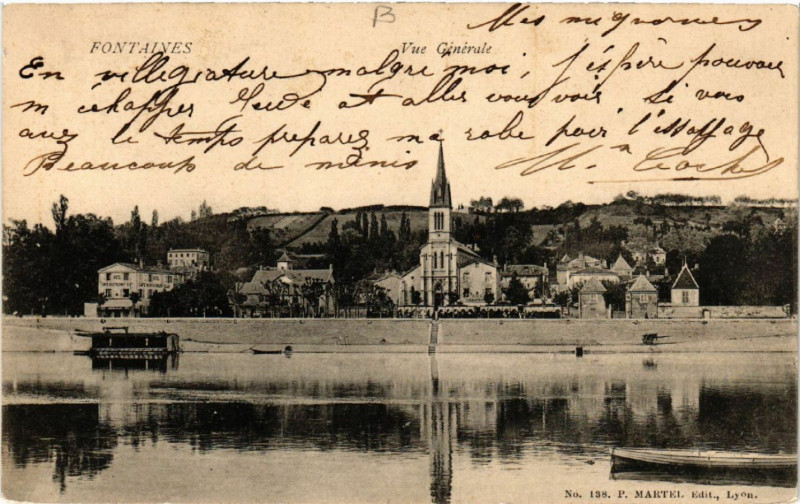 B
Mes mignonnes
FONTAINES Vue Générale
En villégiature malgré moi, j'espère pouvoir
m'échapper et aller vous voir. Si vous
avez le temps préparez ma robe pour l'essayage
Beaucoup de mimis M.
No. 138. P. MARTEL Edit., Lyon.